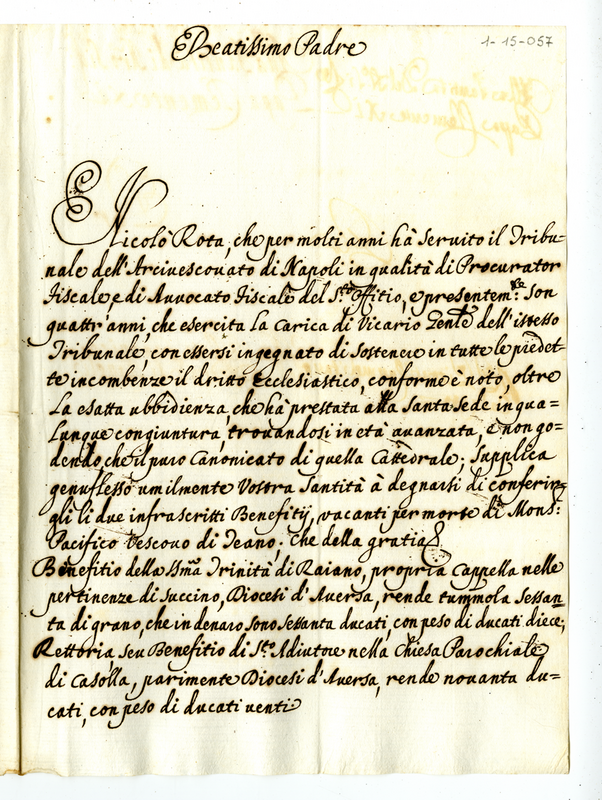 1-15-057
Beatissimo Padre
Nicolò Rota, che per molti anni hà servito il Tribu=
nale dell'Arcivescovato di Napoli in qualità di Procurator
Fiscale, e di Avvocato Fiscale del S.to Offitio, e presentem.te son
quattr'anni, che esercita la carica di Vicario Gen̄le dell'istesso
Tribunale, con essersi ingegnato di sostenere in tutte le predet=
te incombenze il dritto Ecclesiastico, conforme è noto, oltre
la esatta ubbidienza, che hà prestata alla Santa Sede in qua=
lunque congiuntura, trovandosi in età avanzata, e non go=
dendo, che il puro Canonicato di quella Cattedrale; supplica
genuflesso umilmente Vostra Santità à degnarsi di conferir=
gli li due infrascritti Benefitij, vacanti per morte di Mons:
Pacifico Vescovo di Teano, Che della gratia
Benefitio della SSma Trinità di Raiano, propria Cappella nelle
pertinenze di Succino, Diocesi d'Aversa, rende tummola sessan=
ta di grano, che in denaro sono sessanta ducati, con peso di ducati diece;
Rettoria, seu Benefitio di S.to Adiutore nella Chiesa Parochiale
di Casolla, parimente Diocesi d'Aversa, rende novanta du=
cati, con peso di ducati venti